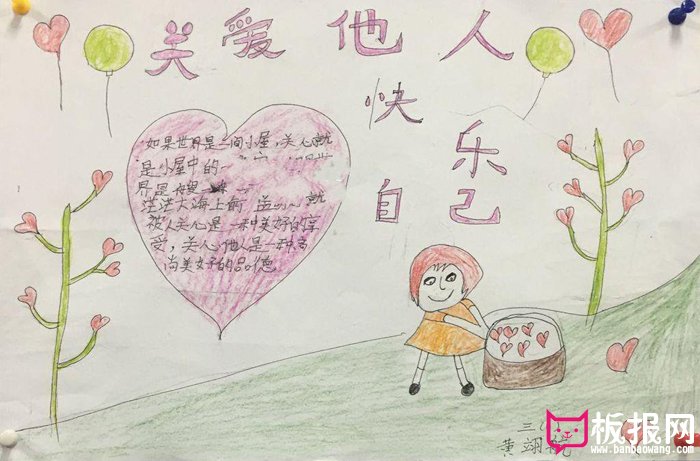 关爱他人
快
乐
自己
如果世界是一间小屋,关心就
是小屋中的一
茫茫大海上
被人关心是一种美好的享
受,关心他人是一种高
尚美好的品德
三
黄翊
板报网
www.banbaowang.com